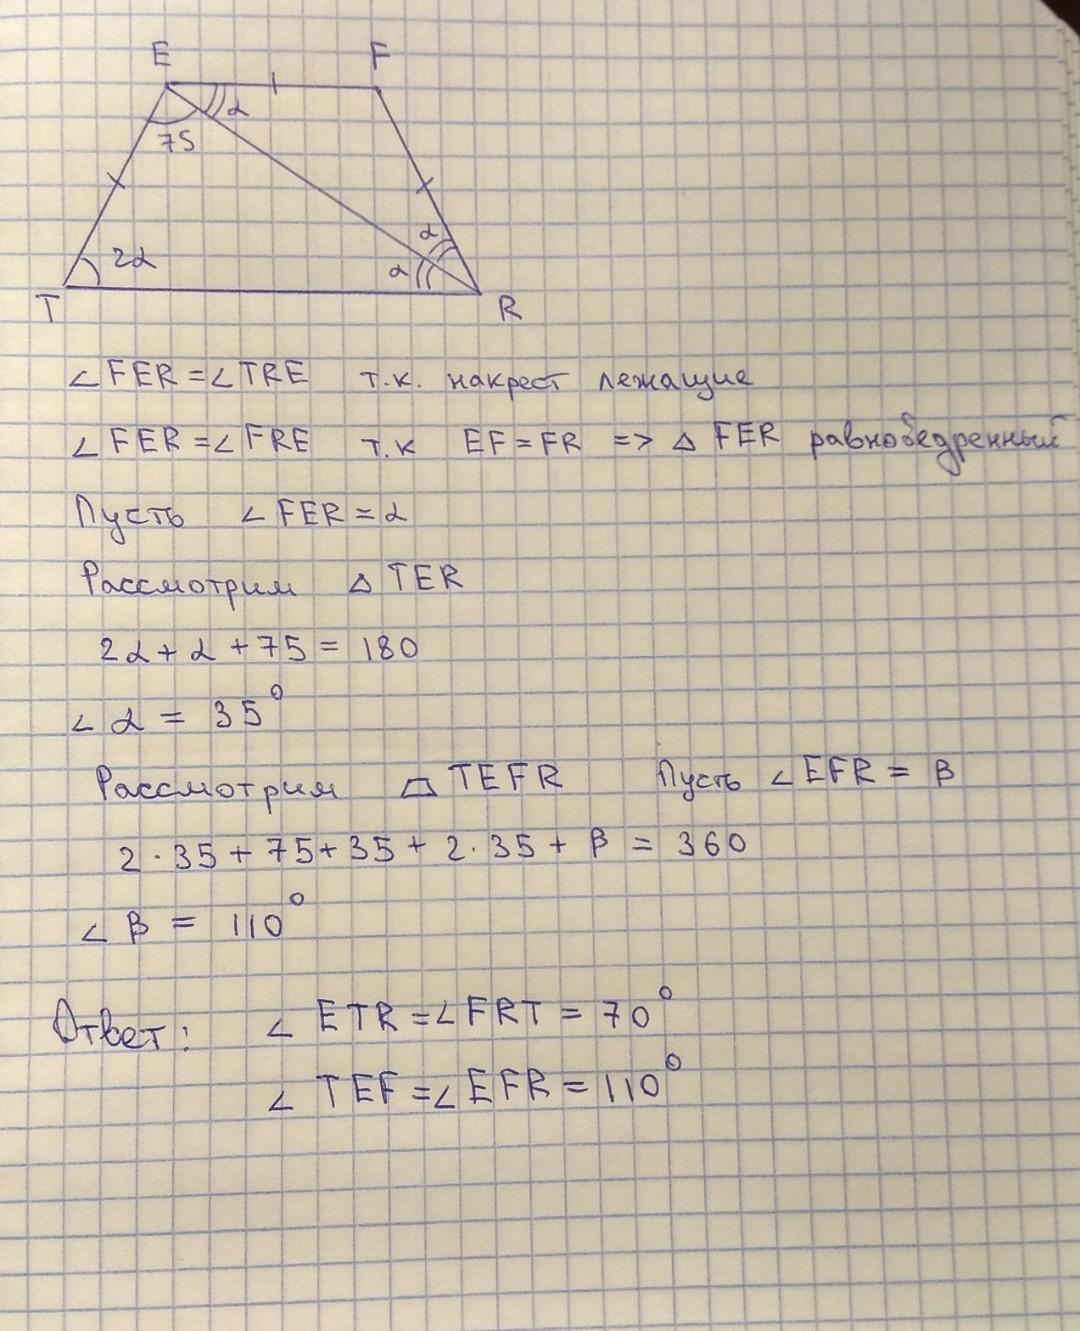 E F
α
75
α
2α α
T R
∠ FER = ∠ TRE т.к. накрест лежащие
∠ FER = ∠ FRE т.к EF = FR => △ FER равнобедренный
Пусть ∠ FER = α
Рассмотрим △ TER
2α + α + 75 = 180
∠ α = 35°
Рассмотрим ⏢ TEFR Пусть ∠ EFR = β
2 · 35 + 75 + 35 + 2 · 35 + β = 360
∠ β = 110°
Ответ: ∠ ETR = ∠ FRT = 70°
∠ TEF = ∠ EFR = 110°